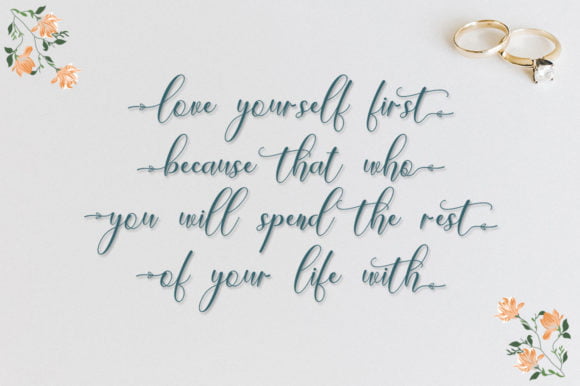 love yourself first
because that who
you will spend the rest
of your life with